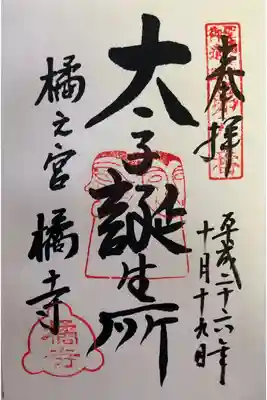 奉拝
平成二十六年
十月十九日
太子誕生所
橘之宮
橘寺
橘寺